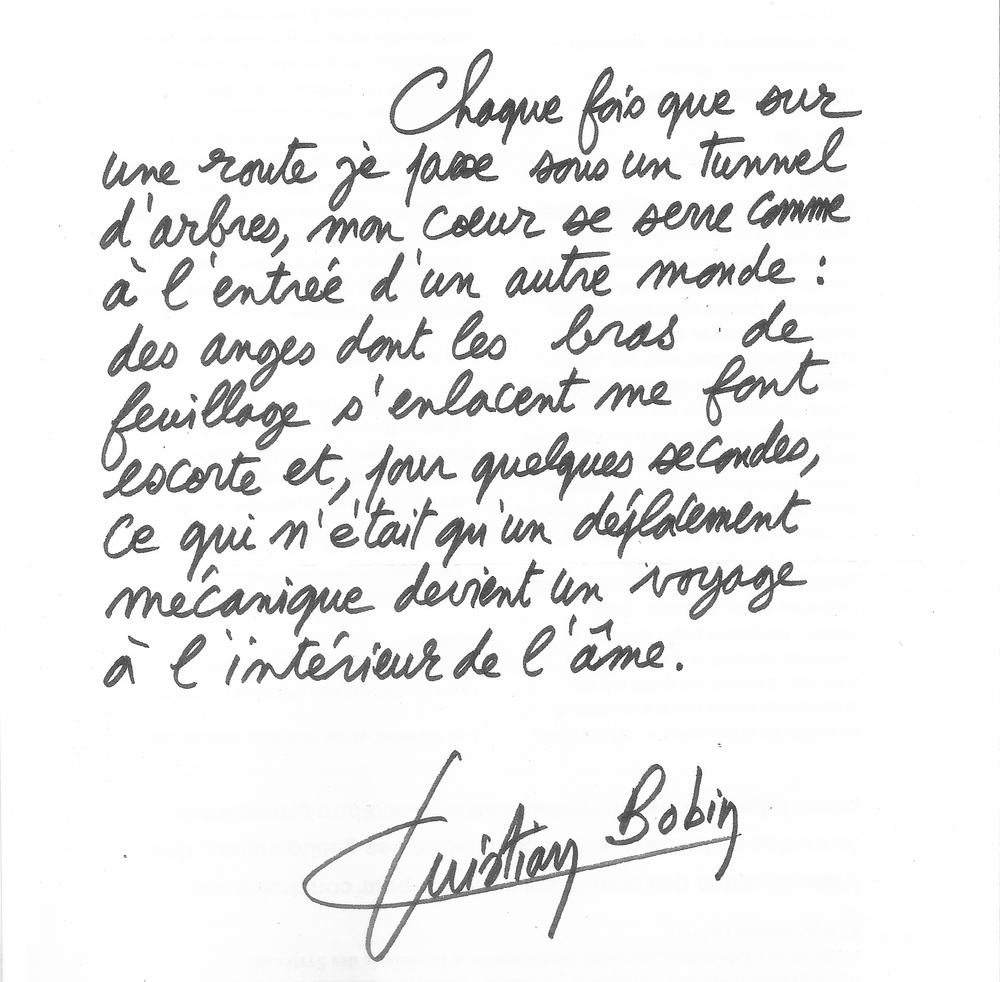 Chaque fois que sur
une route je passe sous un tunnel
d'arbres, mon coeur se serre comme
à l'entrée d'un autre monde :
des anges dont les bras de
feuillage s'enlacent me font
escorte et, pour quelques secondes,
ce qui n'était qu'un déplacement
mécanique devient un voyage
à l'intérieur de l'âme.
Christian Bobin